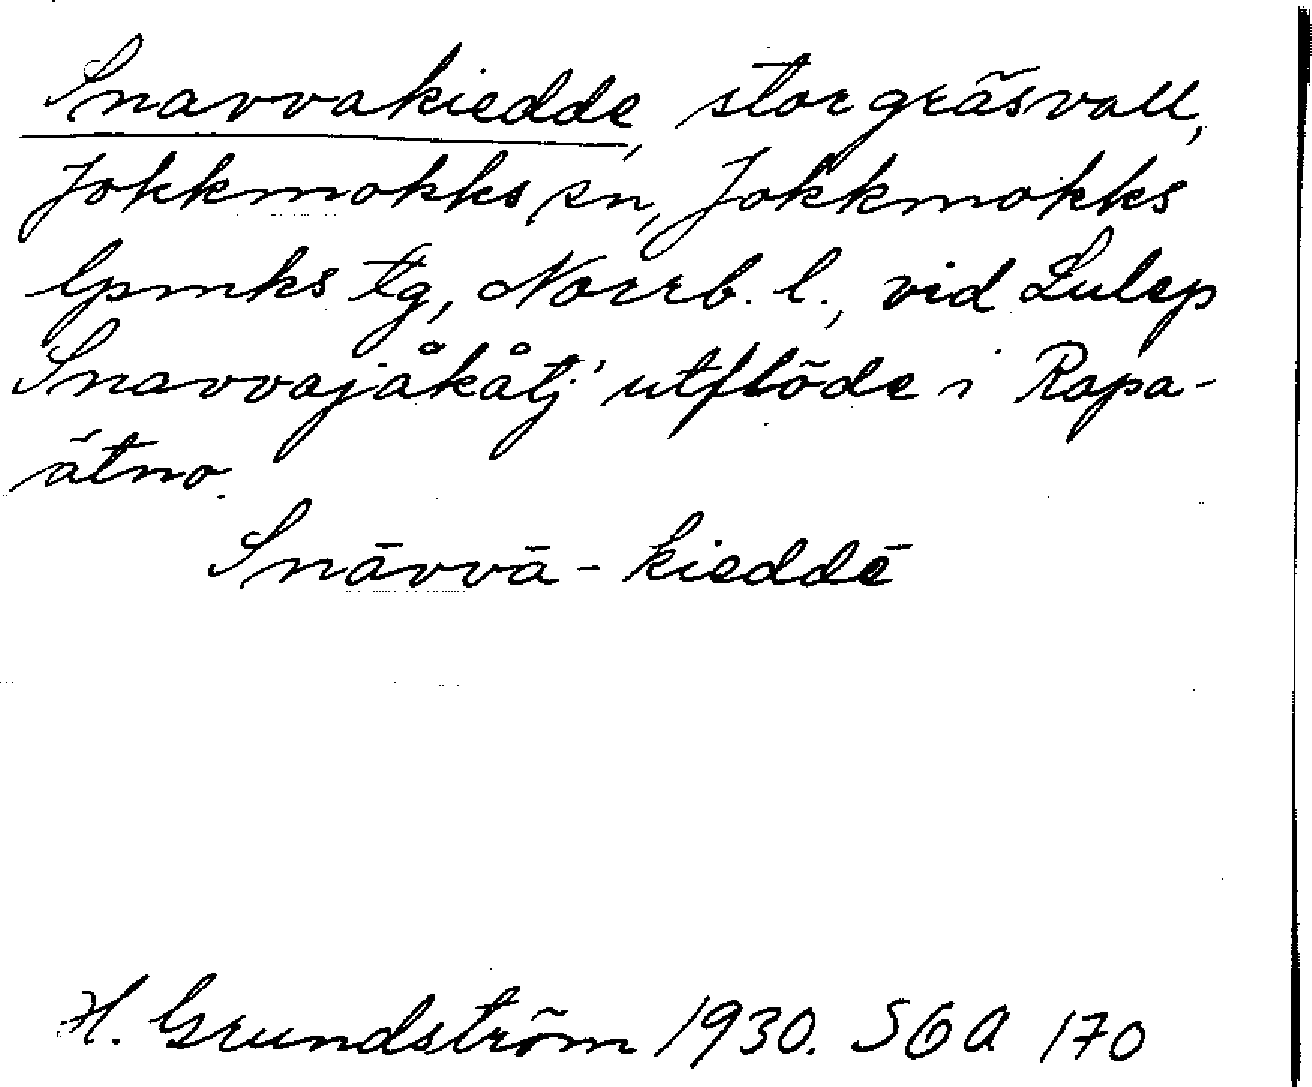 Snavvakiedde, stor gräsvall,
Jokkmokks sn, Jokkmokks
lpmks tg, Norrb. l., vid Lulep
Snavvajåkåtj' utflöde i Rapa-
ätno.
Snāvvā-kieddē
H. Grundström 1930. SGA 170